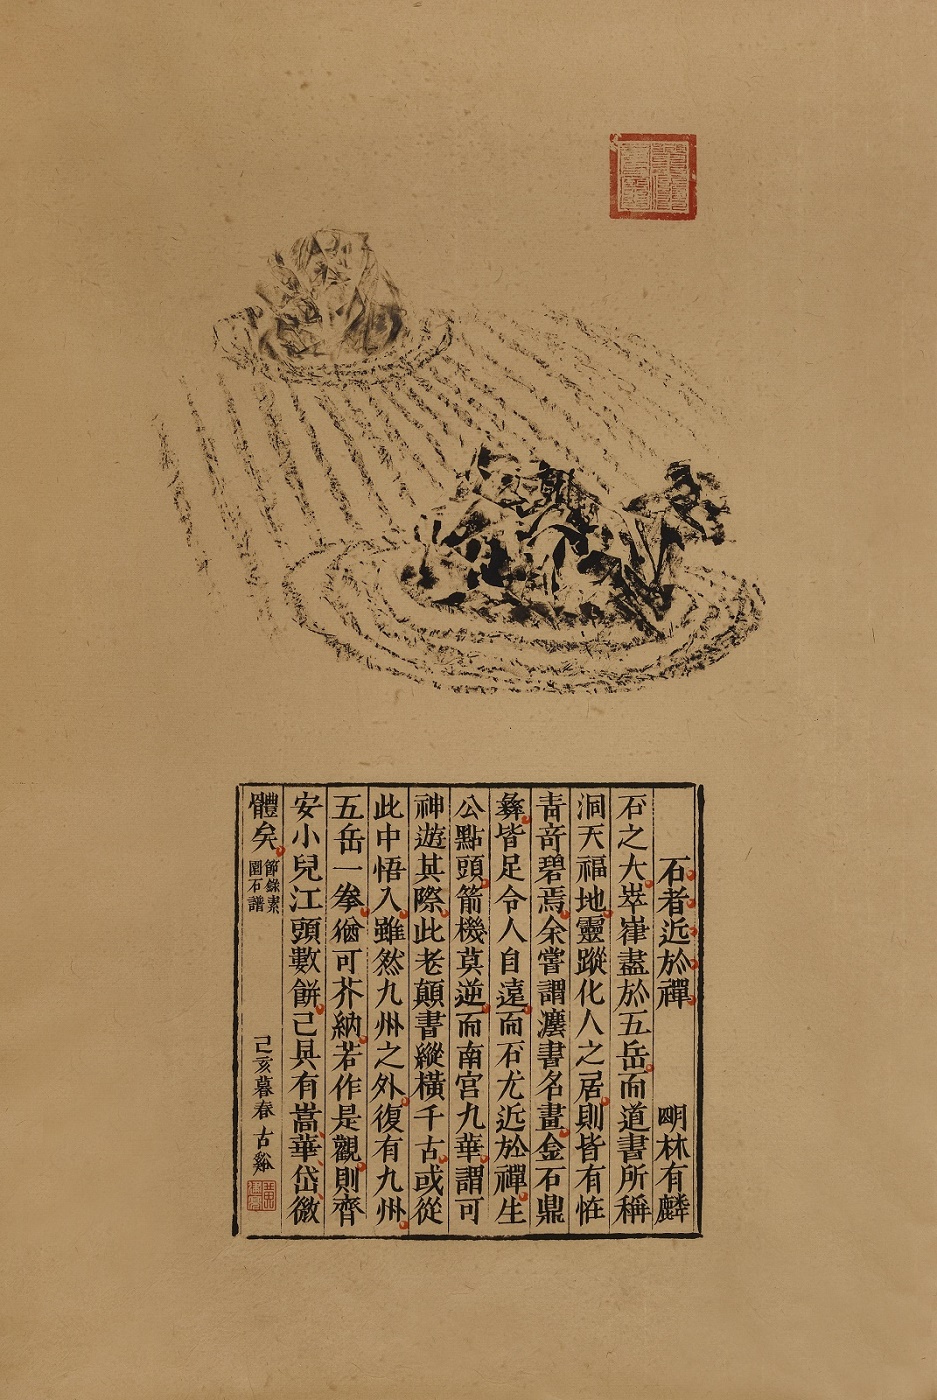 石者近於禪
明林有麟
石之大崒嵂盡於五岳而道書所稱
洞天福地靈蹤化人之居則皆有恠
青奇碧焉余嘗謂灋書名畫金石鼎
彝皆足令人自遠而石尤近於禪生
公點頭箭機莫逆而南宫九華謂可
神遊其際此老顛書縱橫千古或從
此中悟入雖然九州之外復有九州
五岳一拳猶可芥納若作是觀則齊
安小兒江頭數餅已具有嵩華岱微
體矣
節錄素
園石譜
己亥暮春古谿